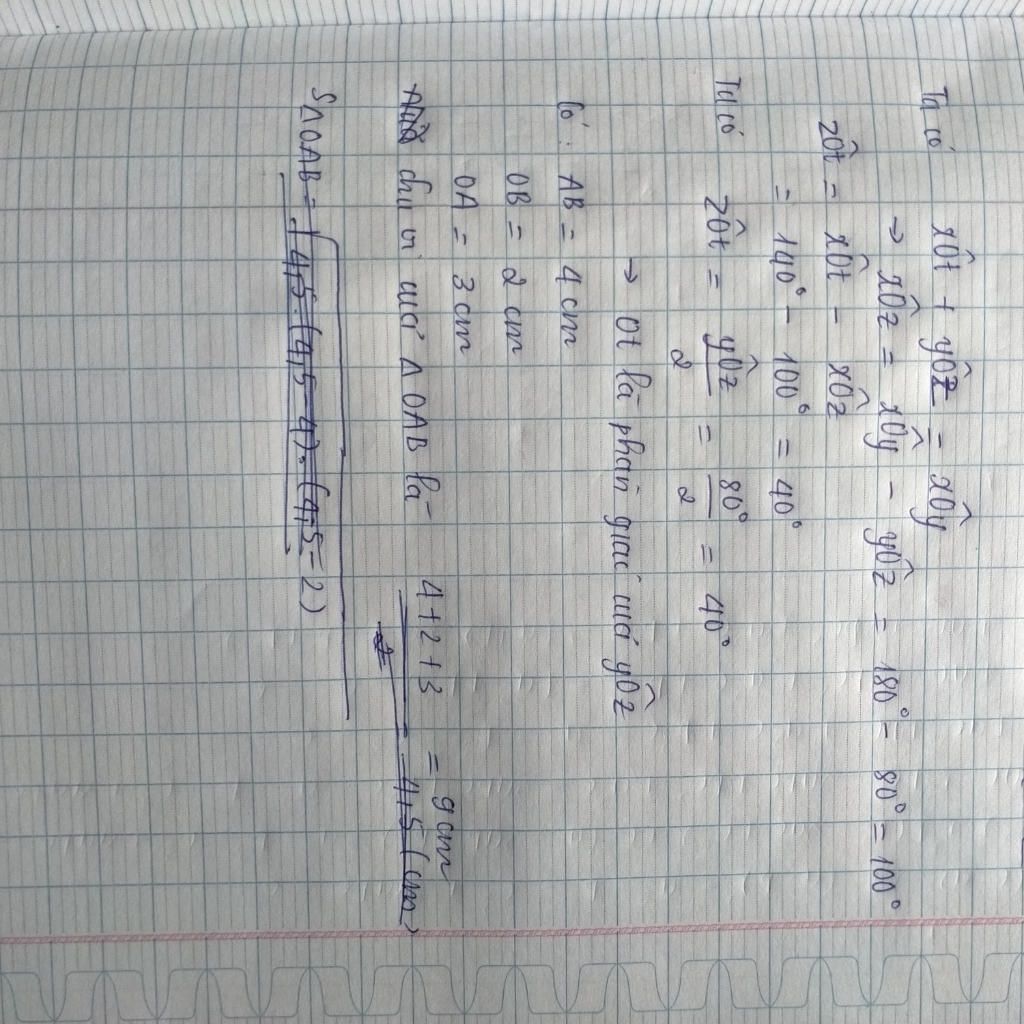 Ta có xÔt + yÔz = xÔy
→ xÔz = xÔy - yÔz = 180° - 80° = 100°
zÔt = xÔt - xÔz
= 140° - 100° = 40°
Ta có zÔt = yÔz/2 = 80°/2 = 40°
→ Ot là phân giác của yÔz
Có: AB = 4 cm
OB = 2 cm
OA = 3 cm
chu vi của Δ OAB là 4+2+3 = 9 cm
= 4,5 (cm)
SΔOAB = √4,5.(4,5-4).(4,5-2)